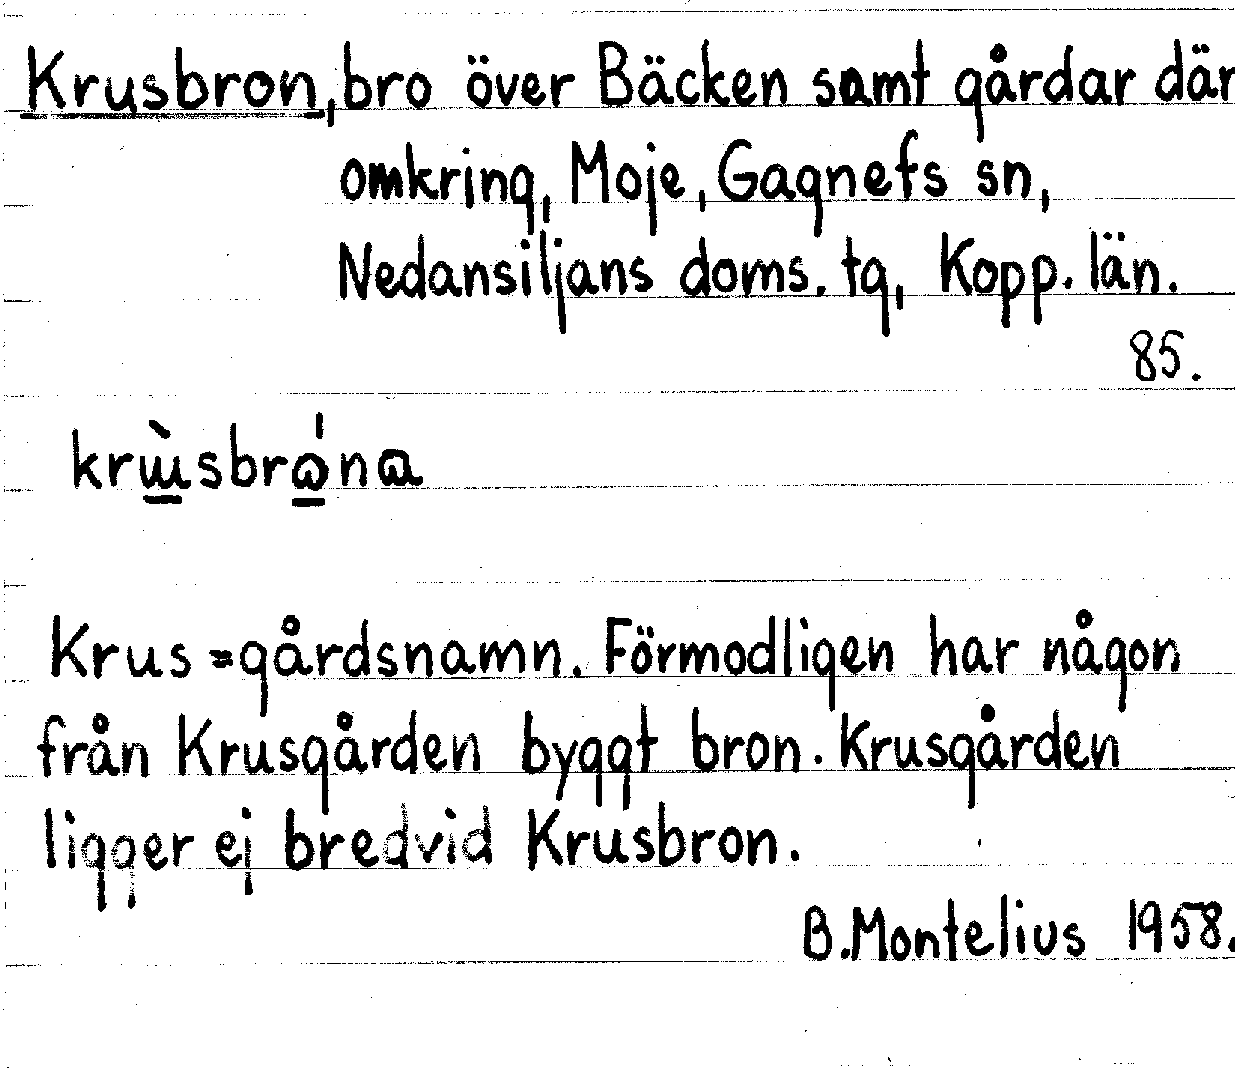 Krusbron, bro över Bäcken samt gårdar där
omkring, Moje, Gagnefs sn,
Nedansiljans doms. tg, Kopp. län.
85.
krɯ̲̀sbrώ̲na
Krus = gårdsnamn. Förmodligen har någon
från Krusgården byggt bron. Krusgården
ligger ej bredvid Krusbron.
B. Montelius 1958.